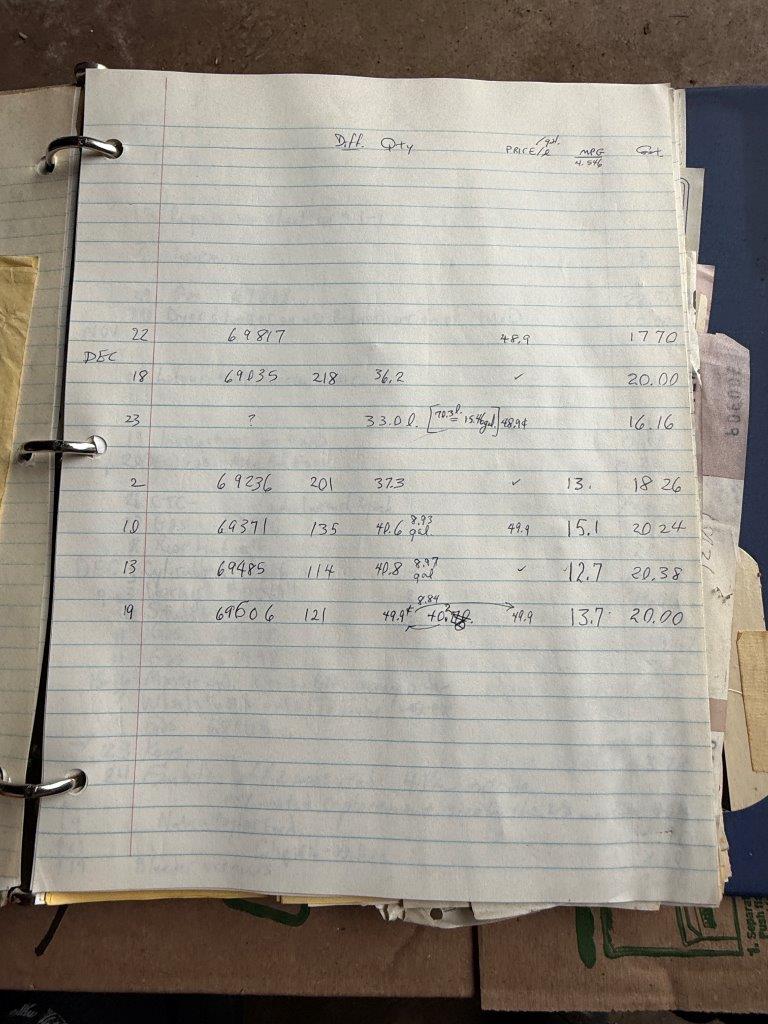 /gal.
Diff. Qty PRICE/l MPG Cost
4.546
22 69817 48.9 17 70
DEC
18 69035 218 36.2 ✓ 20.00
23 ? 33.0 l. [70.3 l. = 15.46 gal.] 48.9¢ 16.16
2 69236 201 37.3 ✓ 13. 18 26
10 69371 135 40.6 8.93 gal. 49.9 15.1 20 24
13 69485 114 40.8 8.97 gal ✓ 12.7 20.38
8.84
19 69606 121 49.9 40. 49.9 13.7 20.00
1. Separa
Push fi